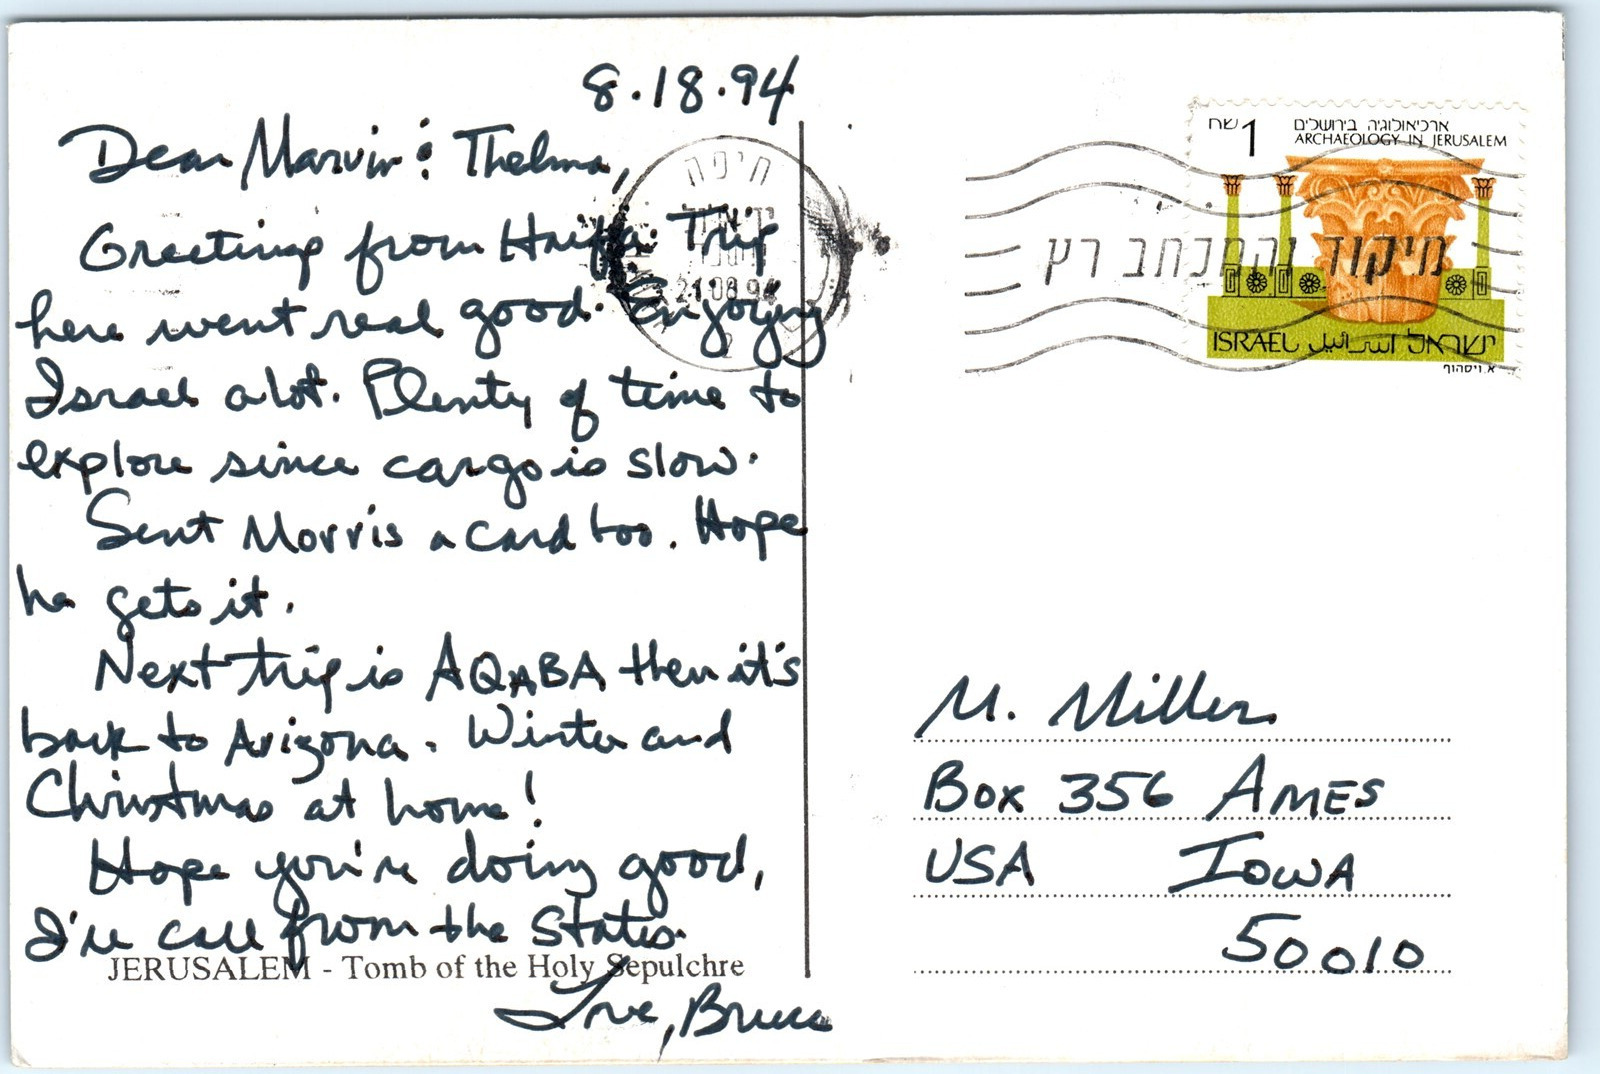 8.18.94
Dear Marvin & Thelma,
Greetings from Haifa. Trip
here went real good. Enjoying
Israel a lot. Plenty of time to
explore since cargo is slow.
Sent Morris a card too. Hope
he gets it.
Next trip is AQABA then it's
back to Arizona. Winter and
Christmas at home!
Hope you're doing good,
I'll call from the States.
JERUSALEM - Tomb of the Holy Sepulchre
Love, Bruce
חיפה
21.08.94
2
מיקוד והמכתב רץ
1 שח
ארכיאולוגיה בירושלים
ARCHAEOLOGY IN JERUSALEM
ISRAEL اسرائيل ישראל
א. ויסהוף
M. Miller
Box 356 AMES
USA IOWA
50010